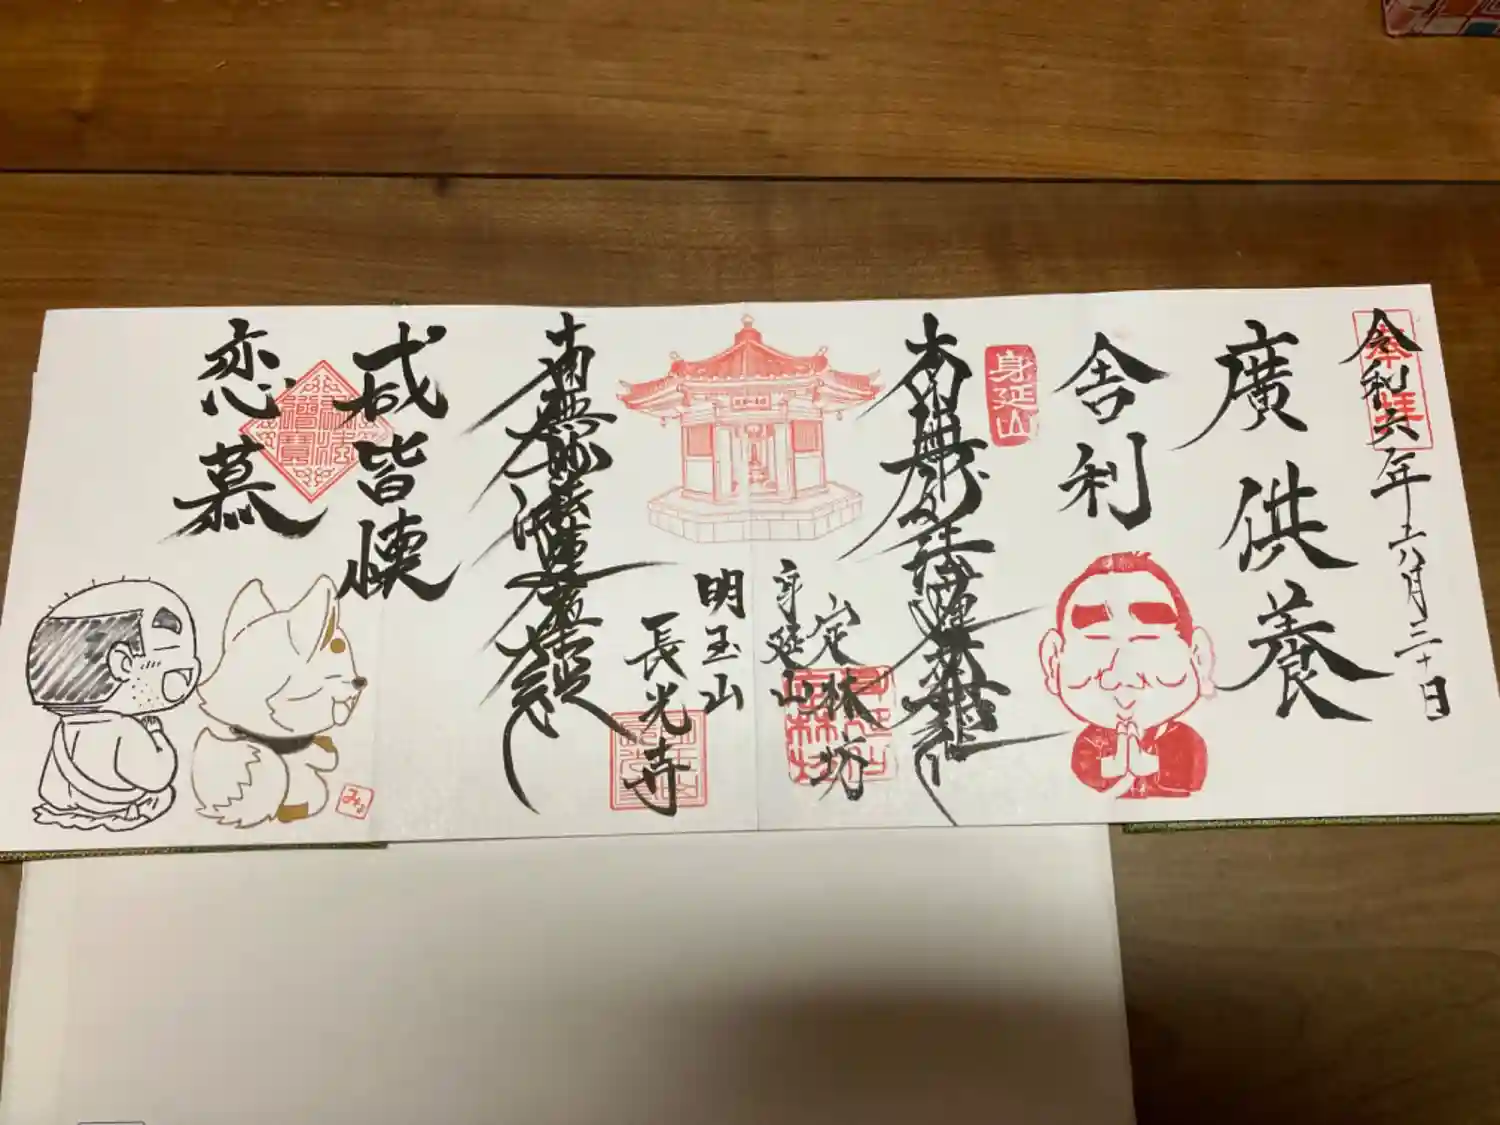 奉拝
令和六年六月三十日
廣供養
舎利
身延山
南無妙法蓮華経
定林坊
身延山
明玉山
長光寺
南無妙法蓮華経
咸皆懐
恋慕